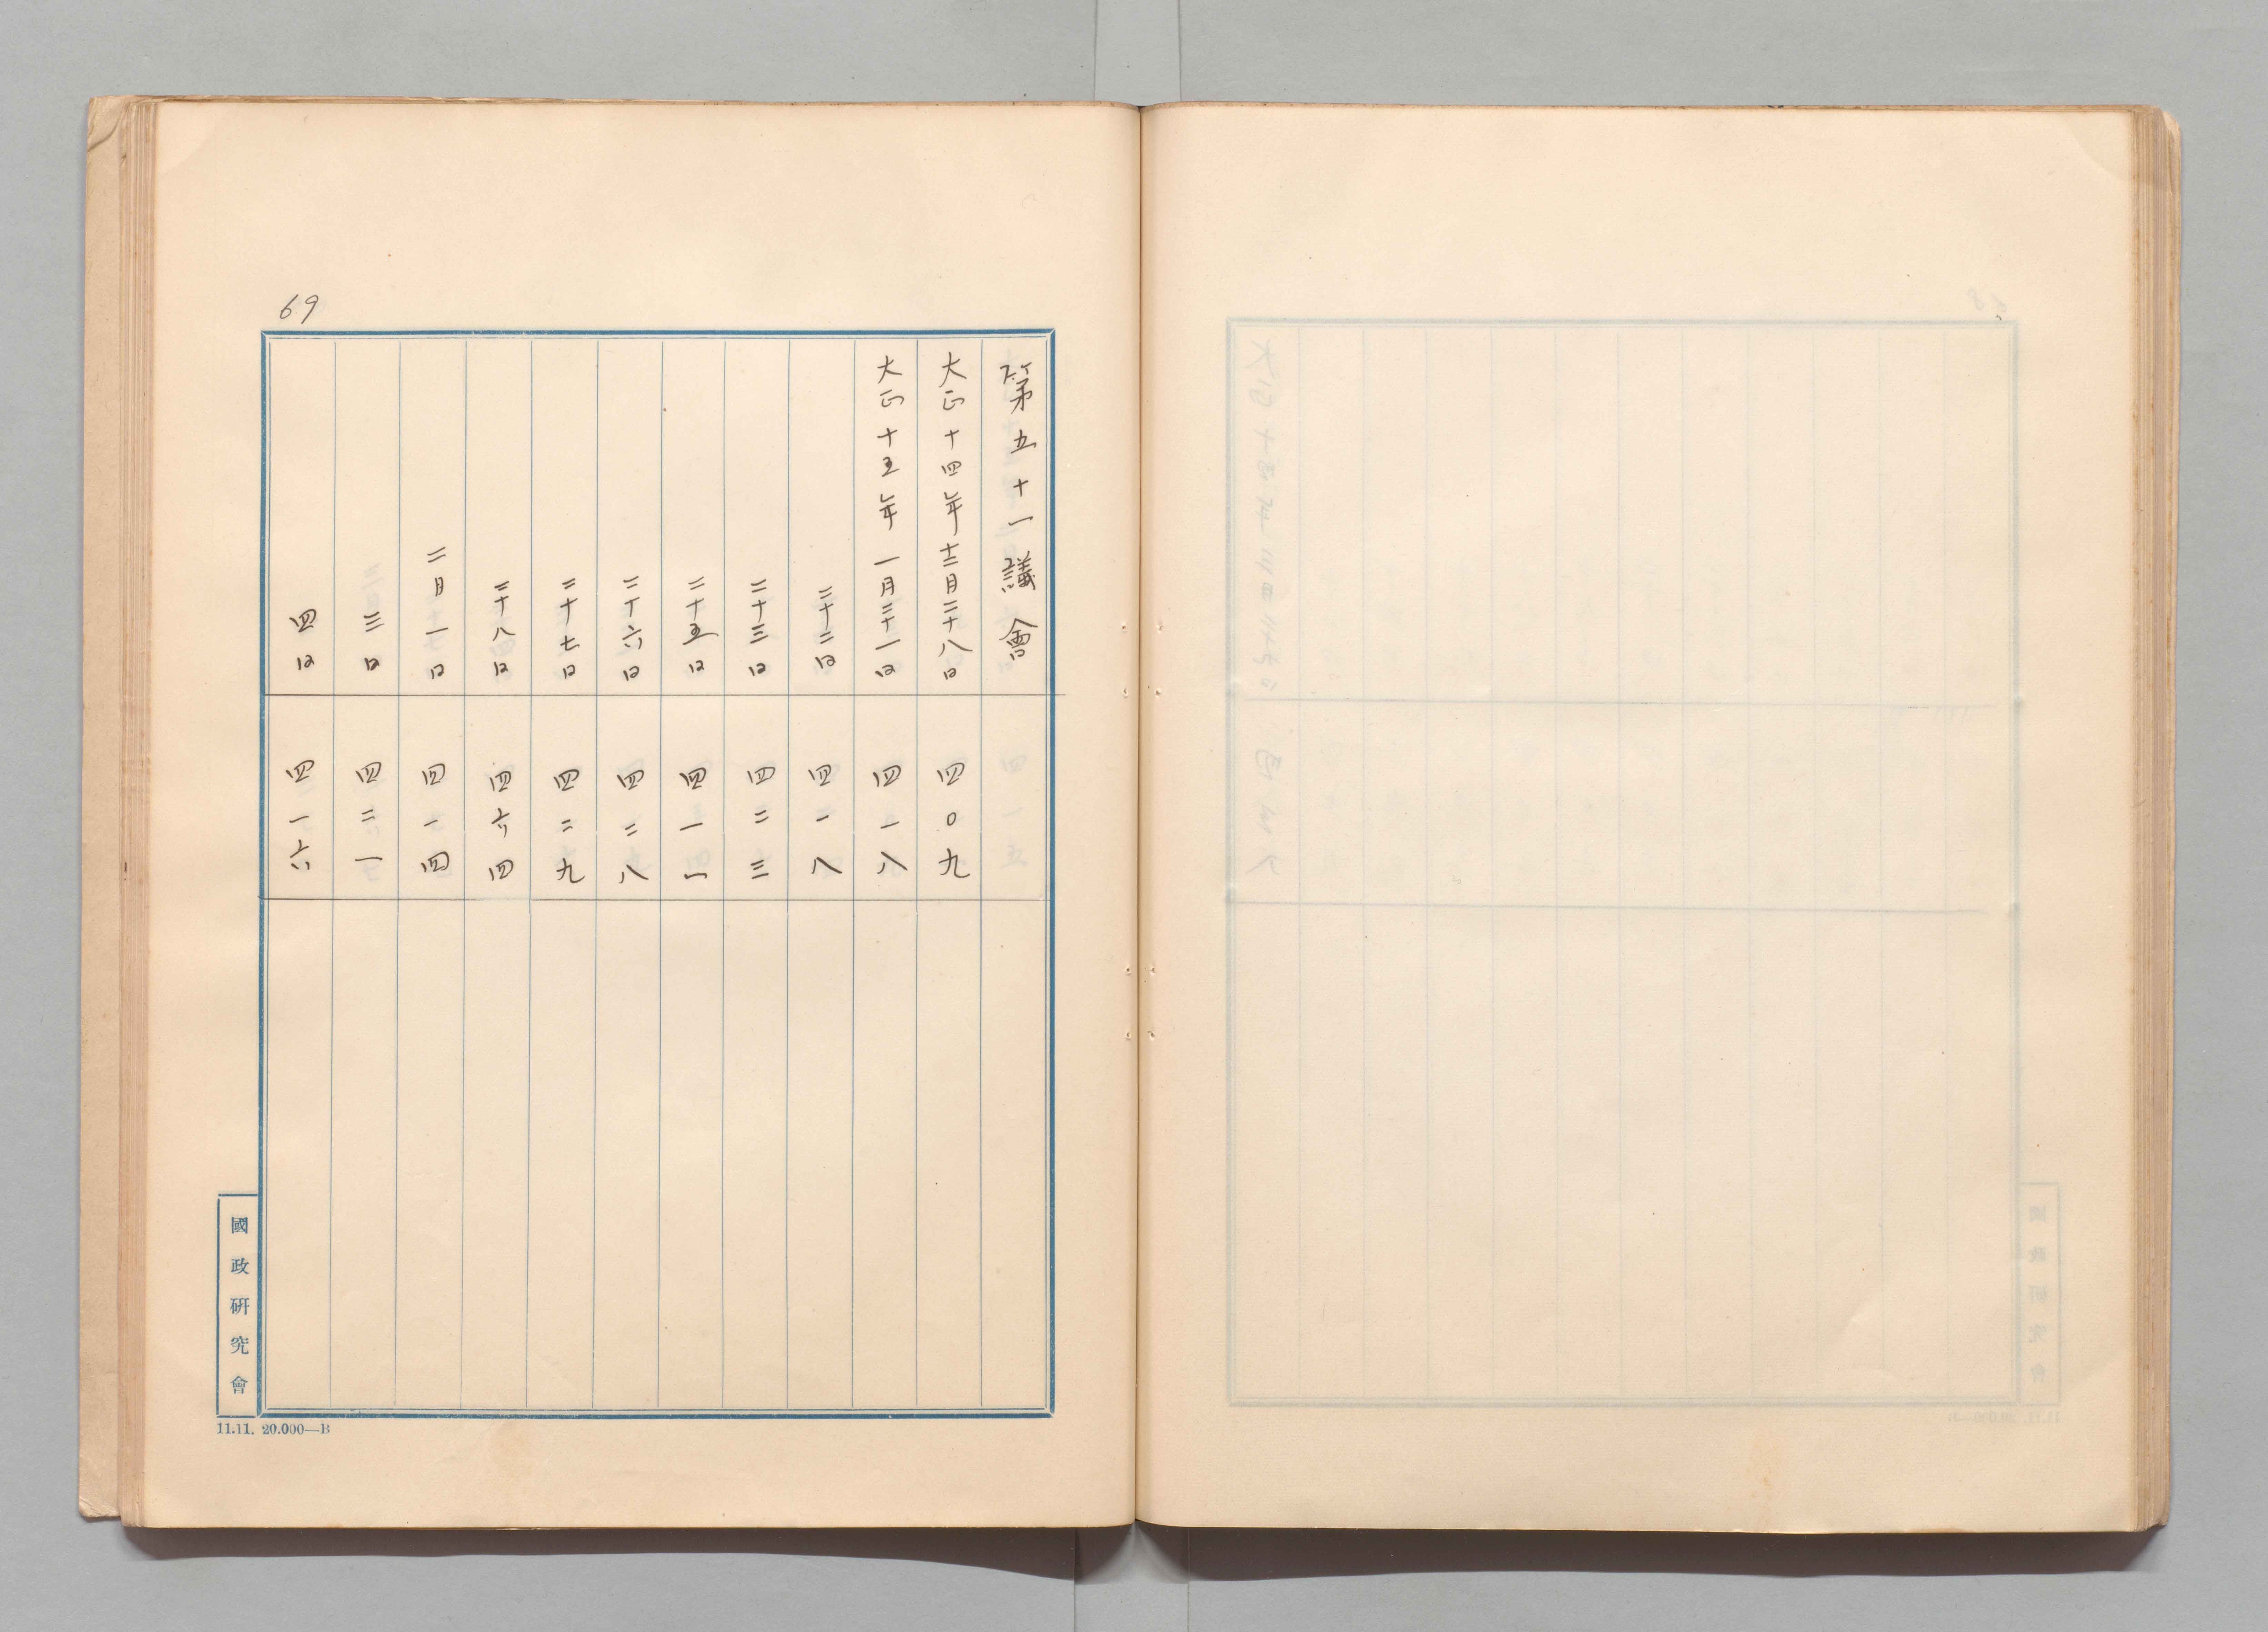 69
第五十一議會
大正十四年十二月二十八日 四〇九
大正十五年一月二十一日 四一八
二十二日 四二八
二十三日 四二三
二十五日 四一一
二十六日 四二八
二十七日 四二九
二十八日 四六四
二月一日 四一四
三日 四二一
四日 四一六
國政研究會
11.11. 20.000—B